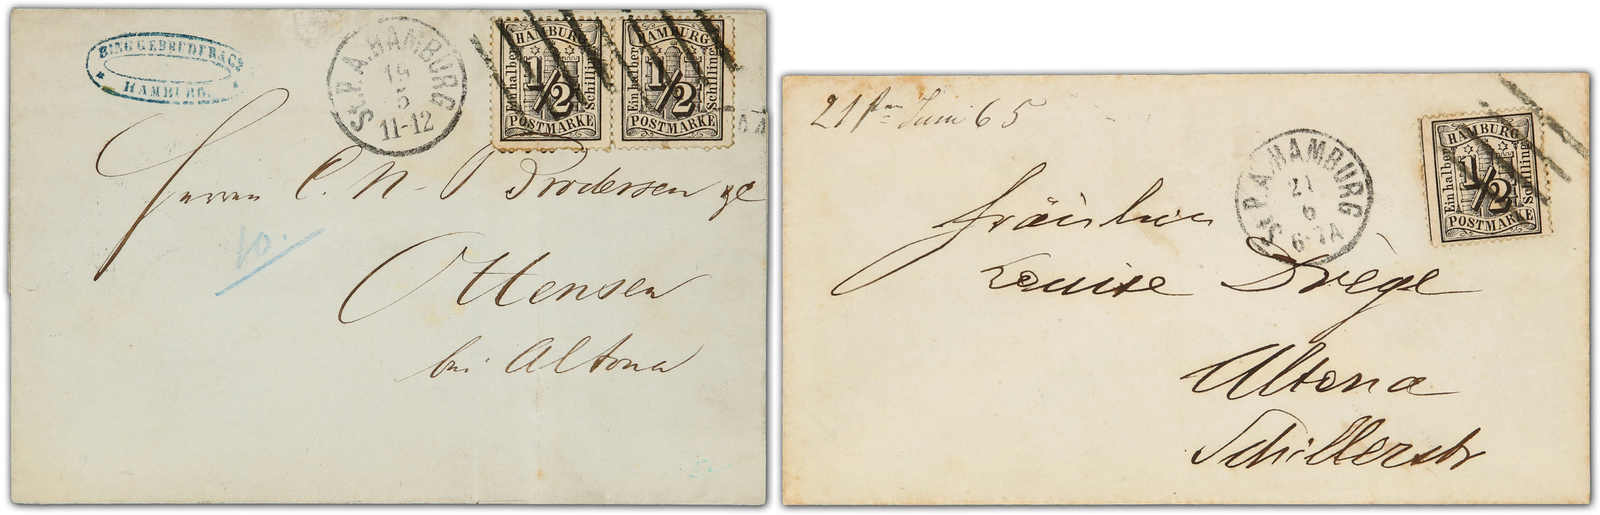 BING GEBRÜDER & Co
HAMBURG.
St. P. A. HAMBURG
19
5
11-12
HAMBURG
Ein halber
1/2
Schilling
POSTMARKE
HAMBURG
Ein halber
1/2
Schilling
POSTMARKE
Herrn C. N.
Ottensen
bei Altona
10.
21sten Juni 65
St. P. A. HAMBURG
21
6
6-7A
HAMBURG
Ein halber
1/2
Schilling
POSTMARKE
Fräulein
Louise Drege
Altona
Schillerstr